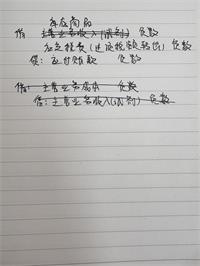 供应商的
借: 主营业务收入(返利) 负数
应交税费(进项税额转出) 负数
贷: 应付账款 负数
借: 主营业务成本 负数
借: 主营业务收入(返利) 负数